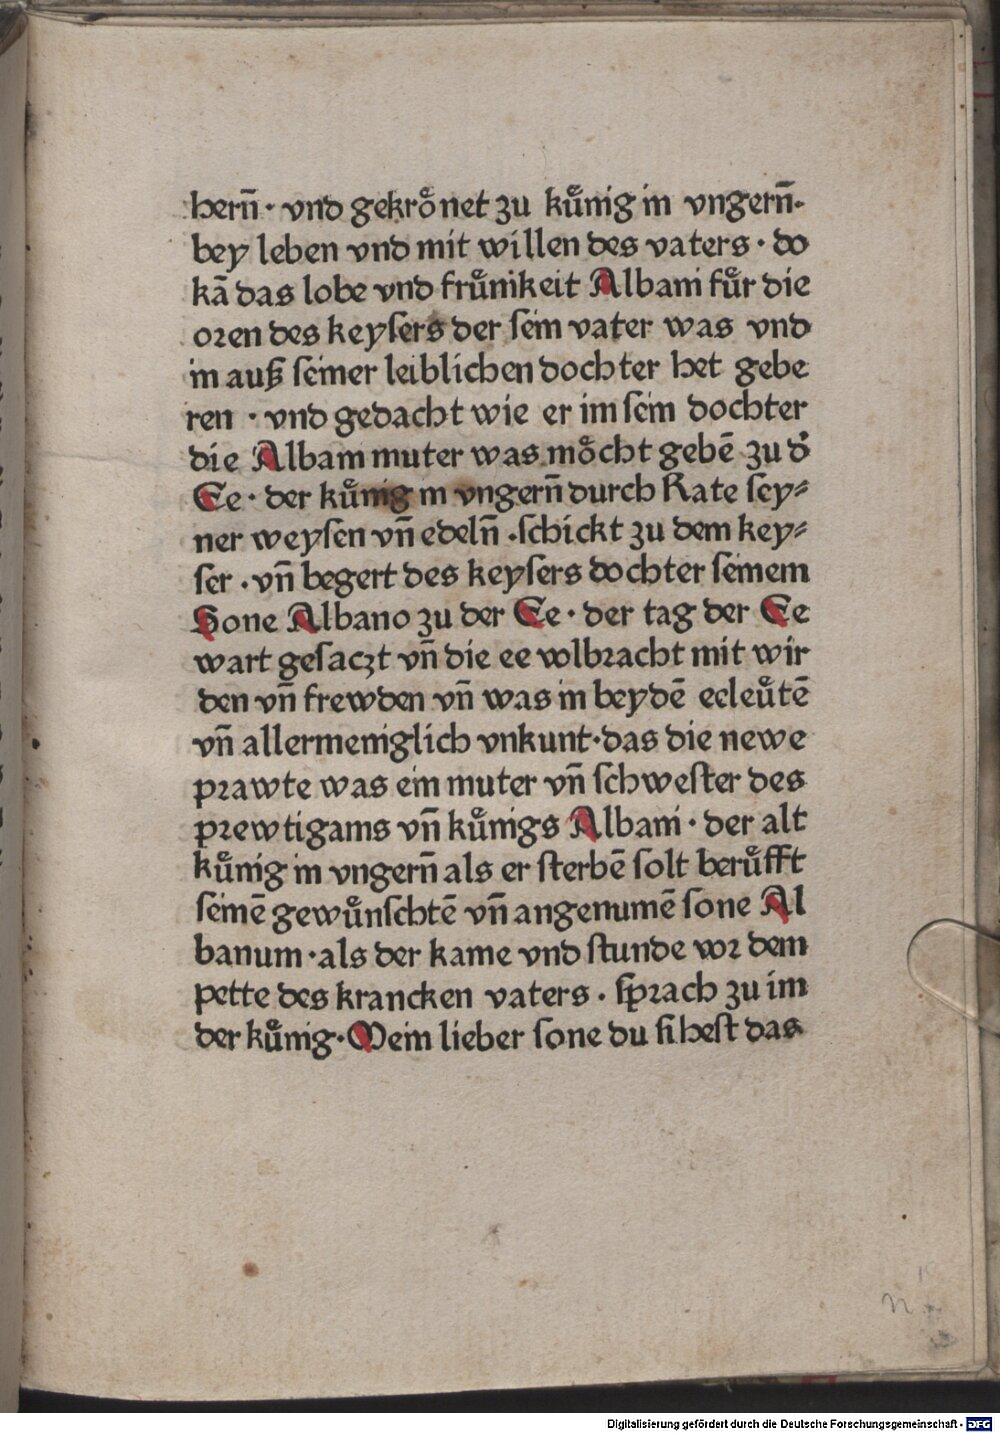 hern̄· vnd gekroͤnet zu kuͤnig in vngern̄·
bey leben vnd mit willen des vaters · do
kā das lobe vnd fruͤmkeit Albani fuͤr die
oren des keyſers der ſein vater was vnd
in auß ſeiner leiblichen dochter het gebe
ren · vnd gedacht wie er im ſein dochter
die Albani muter was moͤcht gebē zu dˀ
Ee · der kuͤnig in vngern̄ durch Rate ſey⸗
ner weyſen vn̄ edeln̄ ·ſchickt zu dem key⸗
ſer · vn̄ begert des keyſers dochter ſeinem
Sone Albano zu der Ee · der tag der Ee
wart geſaczt vn̄ die ee volbꝛacht mit wir
den vn̄ frewden vn̄ was in beydē eeleuͤtē
vn̄ allermeniglich vnkunt·das die newe
pꝛawte was ein muter vn̄ ſchweſter des
pꝛewtigams vn̄ kuͤnigs Albani · der alt
kuͤnig in vngern̄ als er ſterbē ſolt beruͤfft
ſeinē gewuͤnſchtē vn̄ angenumē ſone Al
banum ·als der kame vnd ſtunde voꝛ dem
pette des krancken vaters · ſpꝛach zu im
der kuͤnig·Mein lieber ſone du ſiheſt das
n
Digitalisierung gefördert durch die Deutsche Forschungsgemeinschaft - DFG